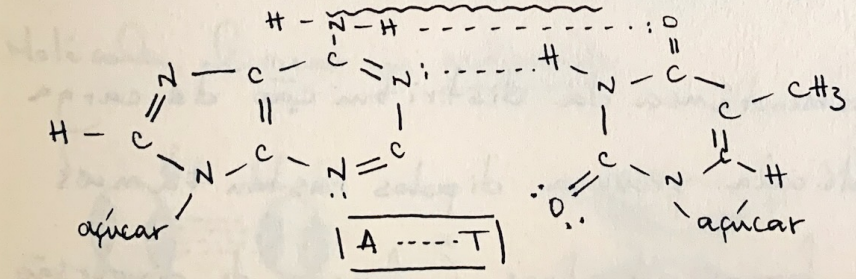 H - N - H - - - - - - - - - - :O
N - C - C = N: - - - - - - H - N - C - C - CH3
H - C N - C - N = C C - N - C - H
açúcar O açúcar
A ----- T